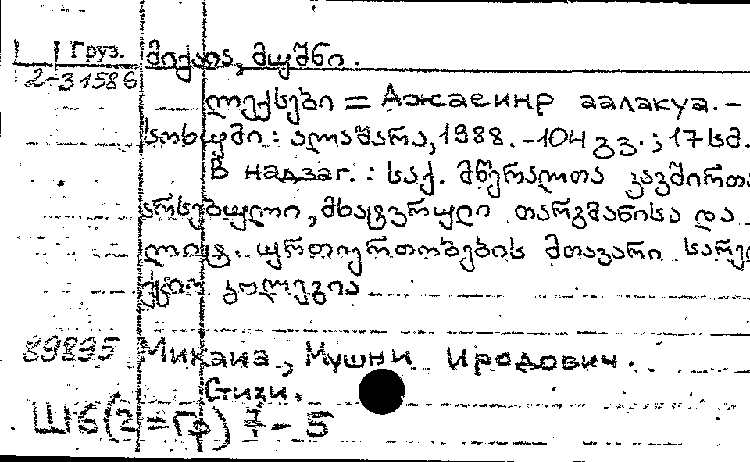 Груз. მიქაია, მუშნი.
2-31586
ლექსები = Ажәеинр аалакуа. -
სოხუმი: ალაშარა, 1988. - 104 გვ.; 17 სმ.
В надзаг.: საქ. მწერალთა კავშირთა
არსებული, მხატვრული თარგმანისა და
ლიტ. ურთიერთობების მთავარი სარედ
ქციო კოლეგია
89895 Микаиа, Мушни Иродович.
Стихи.
Ш6(2=Гр)7-5